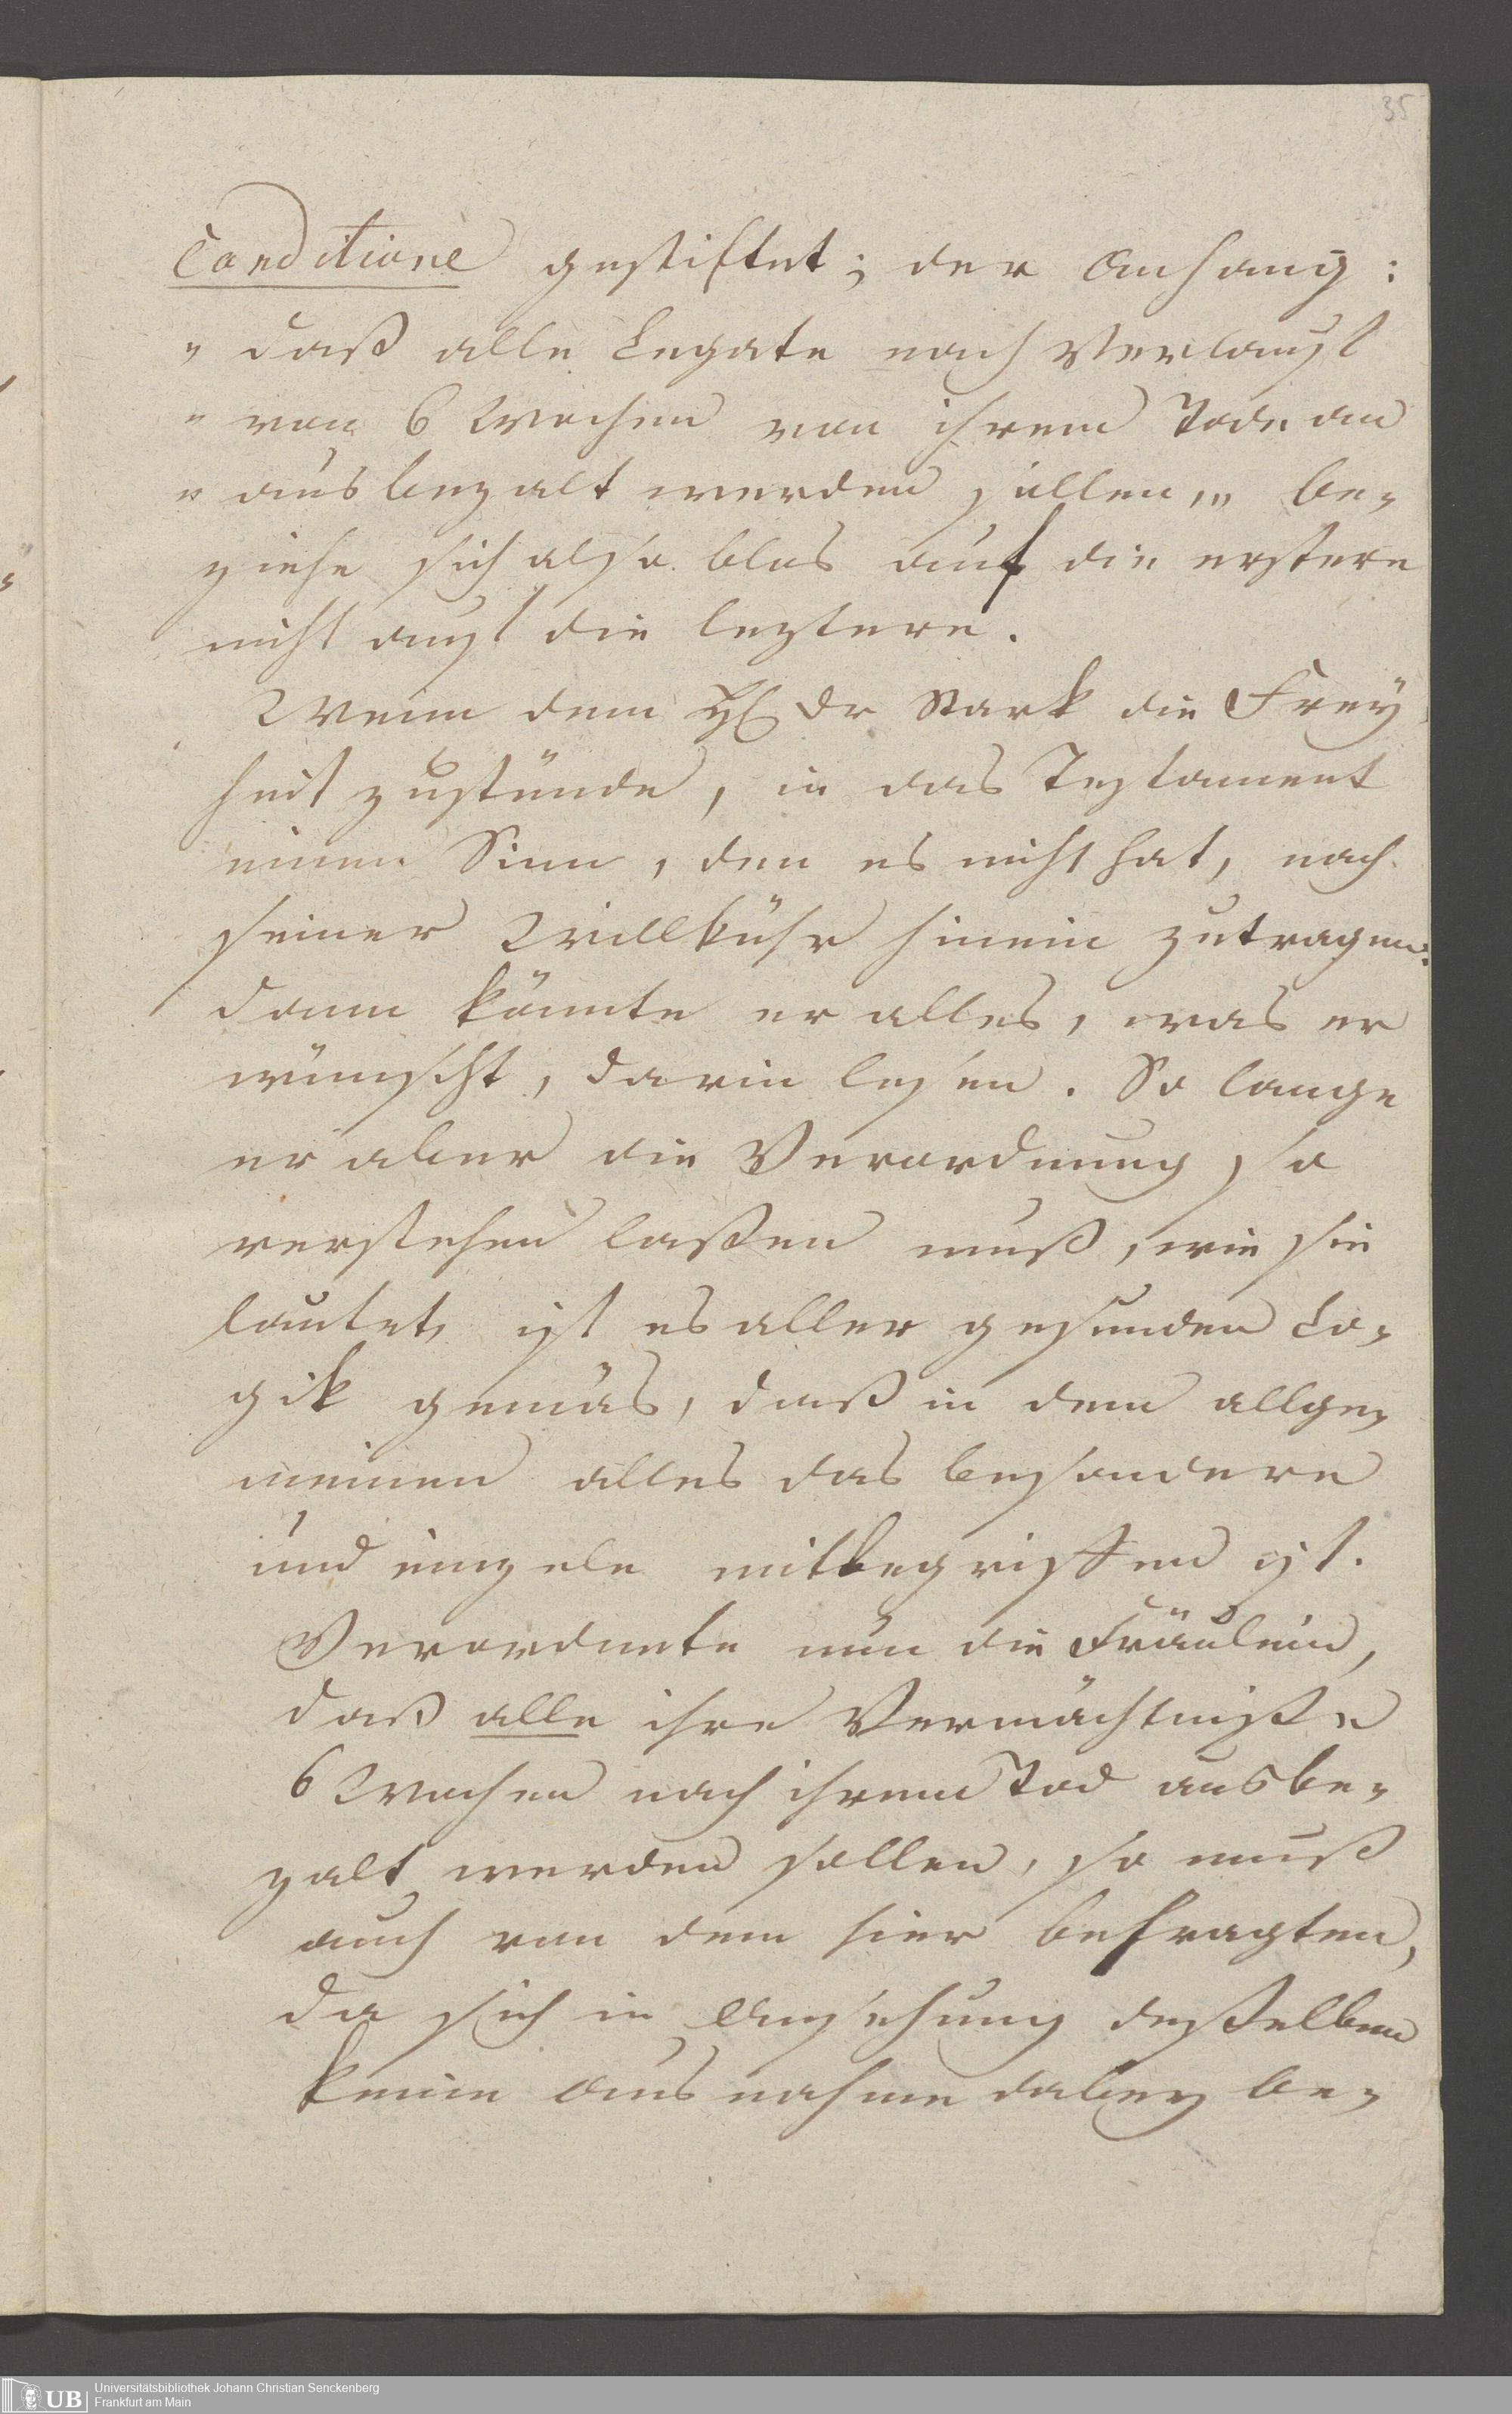 35
Conditione gestiftet; der Anhang:
„ daß alle Legate nach Verlauf
„ von 6 Wochen von ihrem Tode an
„ ausbezalt werden sollen,„ be-
ziehe sich also blos auf die erstere
nicht auf die leztere.
Wenn dem H Dr Stark die Frey
heit zustünde, in das Testament
einen Sinn, den es nicht hat, nach
seiner Willkühr hinein zutragen:
dann könnte er alles, was er
wünscht, darin lesen. So lange
er aber die Verordnung so
verstehen laßen muß, wie sie
lautet, ist es aller gesunden Lo-
gik gemäs, daß in dem allge-
meinen alles das besondere
und einzele mitbegriffen ist.
Verordnete nun die Fräulein,
daß alle ihre Vermächtniße
6 Wochen nach ihrem Tod ausbe-
zalt werden sollen, so muß
auch von dem hier befragten,
da sich in Ansehung deßelben
keine Ausnahme dabey be-
UB
Universitätsbibliothek Johann Christian Senckenberg
Frankfurt am Main